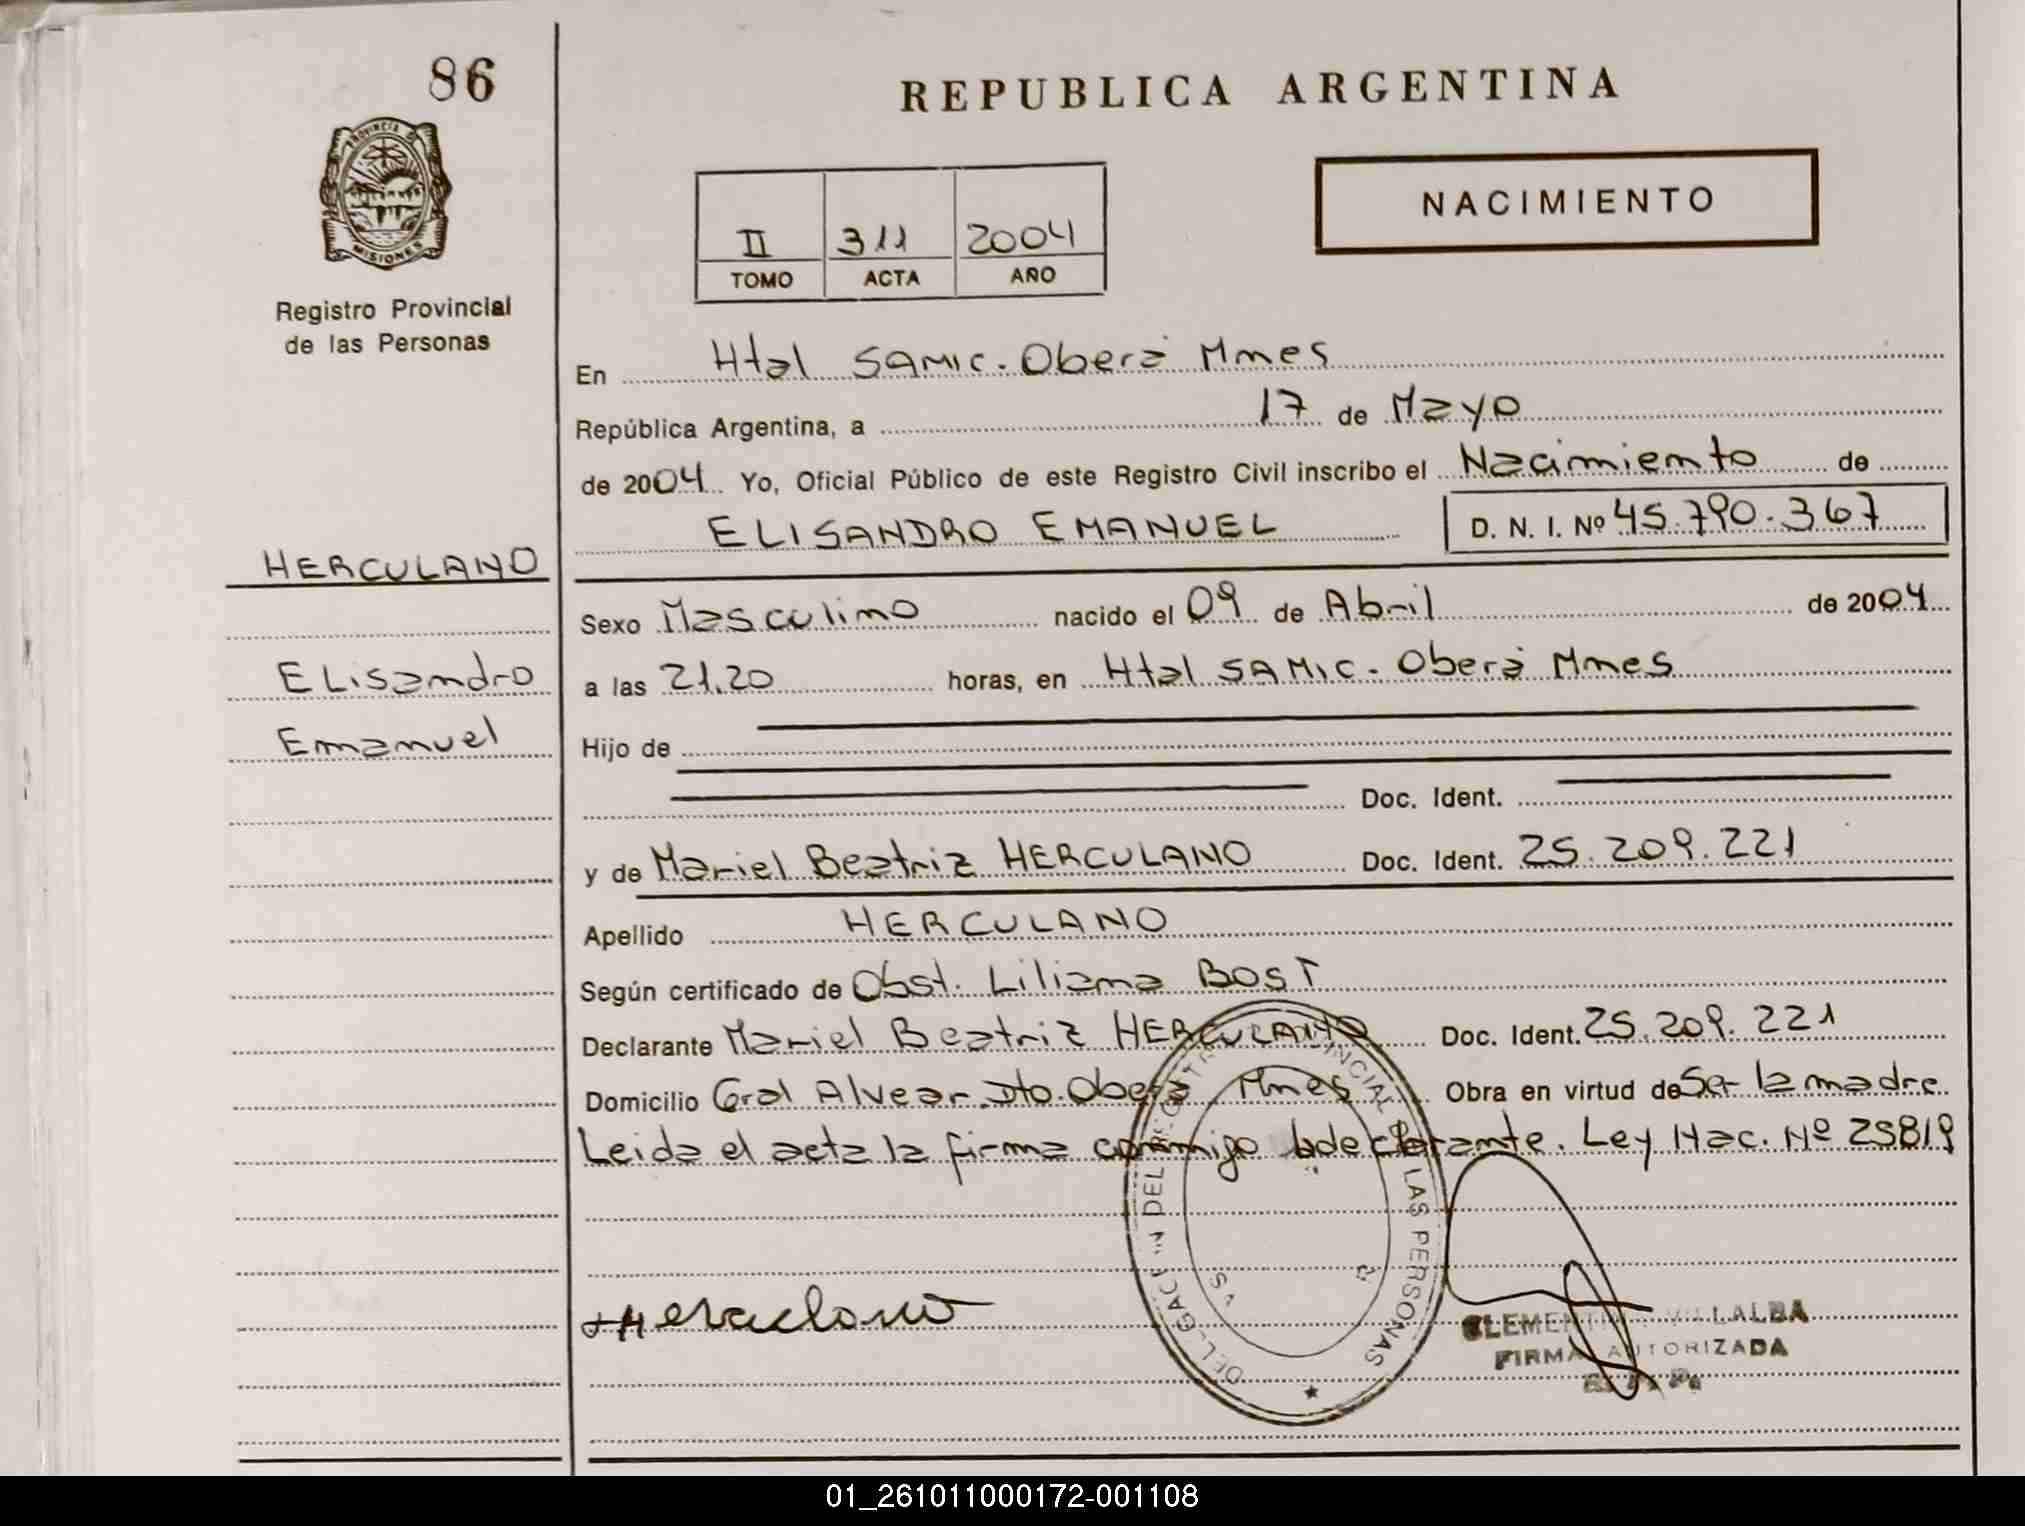 86
REPUBLICA ARGENTINA
PROVINCIA DE
MISIONES
NACIMIENTO
II 311 2004
TOMO ACTA AÑO
Registro Provincial
de las Personas
En Htal SAMIC. Oberá Mnes
República Argentina, a 17 de Mayo
de 2004 Yo, Oficial Público de este Registro Civil inscribo el Nacimiento de
ELISANDRO EMANUEL D. N. I. Nº 45.790.367
HERCULANO
Sexo Masculino nacido el 09 de Abril de 2004
Elisandro
a las 21.20 horas, en Htal SAMIC. Oberá Mnes
Emanuel
Hijo de
Doc. Ident.
y de Mariel Beatriz HERCULANO Doc. Ident. 25.209.221
Apellido HERCULANO
Según certificado de Obst. Liliana BOST
Declarante Mariel Beatriz HERCULANO Doc. Ident. 25.209.221
Domicilio Gral Alvear. Dto. Oberá Mnes Obra en virtud de Ser la madre.
Leida el acta la firma conmigo la declarante. Ley Nac. Nº 25819
Herculano
DEL LAS PERSONAS
VILLALBA
FIRMA AUTORIZADA
01_261011000172-001108